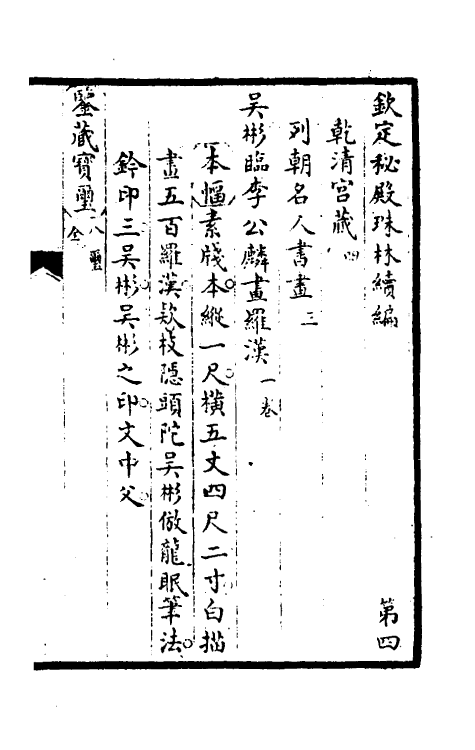 欽定秘殿珠林續編 第四
乾清宮藏四
列朝名人書畫三
吳彬臨李公麟畫羅漢一卷
本幅素牋本縱一尺橫五丈四尺二寸白描
畫五百羅漢欵枝隱頭陀吳彬倣龍眠筆法
鈐印三吳彬吳彬之印文中父
鑒藏寶璽八璽全